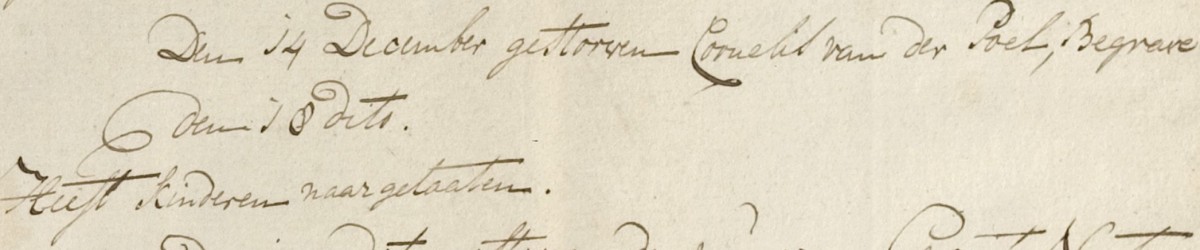 Den 14 December gestorven Cornelis van der Poel, Begrave
den 18 dito.
Heeft kinderen naargelaaten.